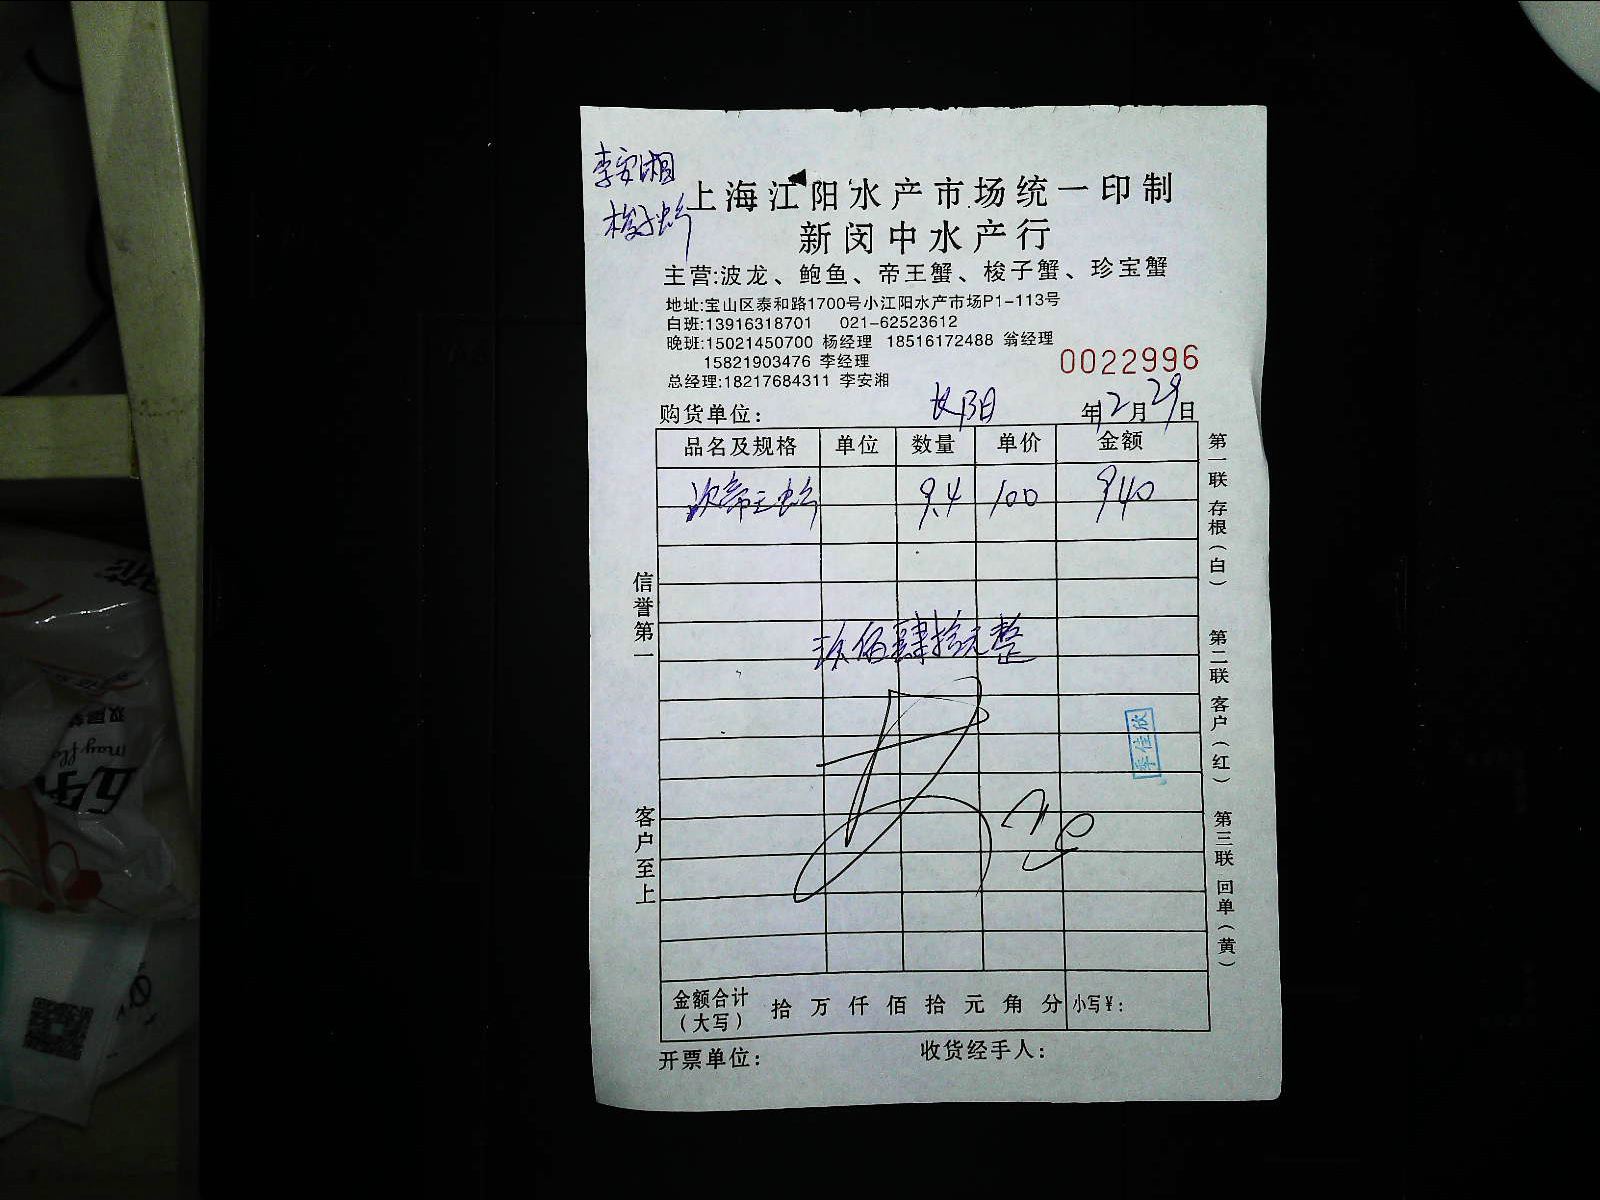 李安湘
梭子蟹
上海江阳水产市场统一印制
新闵中水产行
主营:波龙、鲍鱼、帝王蟹、梭子蟹、珍宝蟹
地址:宝山区泰和路1700号小江阳水产市场P1-113号
白班:13916318701 021-62523612
晚班:15021450700 杨经理 18516172488 翁经理
15821903476 李经理
总经理:18217684311 李安湘
0022996
购货单位: 长阳 年2月29日
品名及规格 单位 数量 单价 金额
次帝王蟹 9.4 100 940
玖佰肆拾元整
李佳欣
金额合计(大写) 拾 万 仟 佰 拾 元 角 分 小写¥:
开票单位: 收货经手人:
信誉第一
客户至上
第一联 存根(白)
第二联 客户(红)
第三联 回单(黄)
may flo